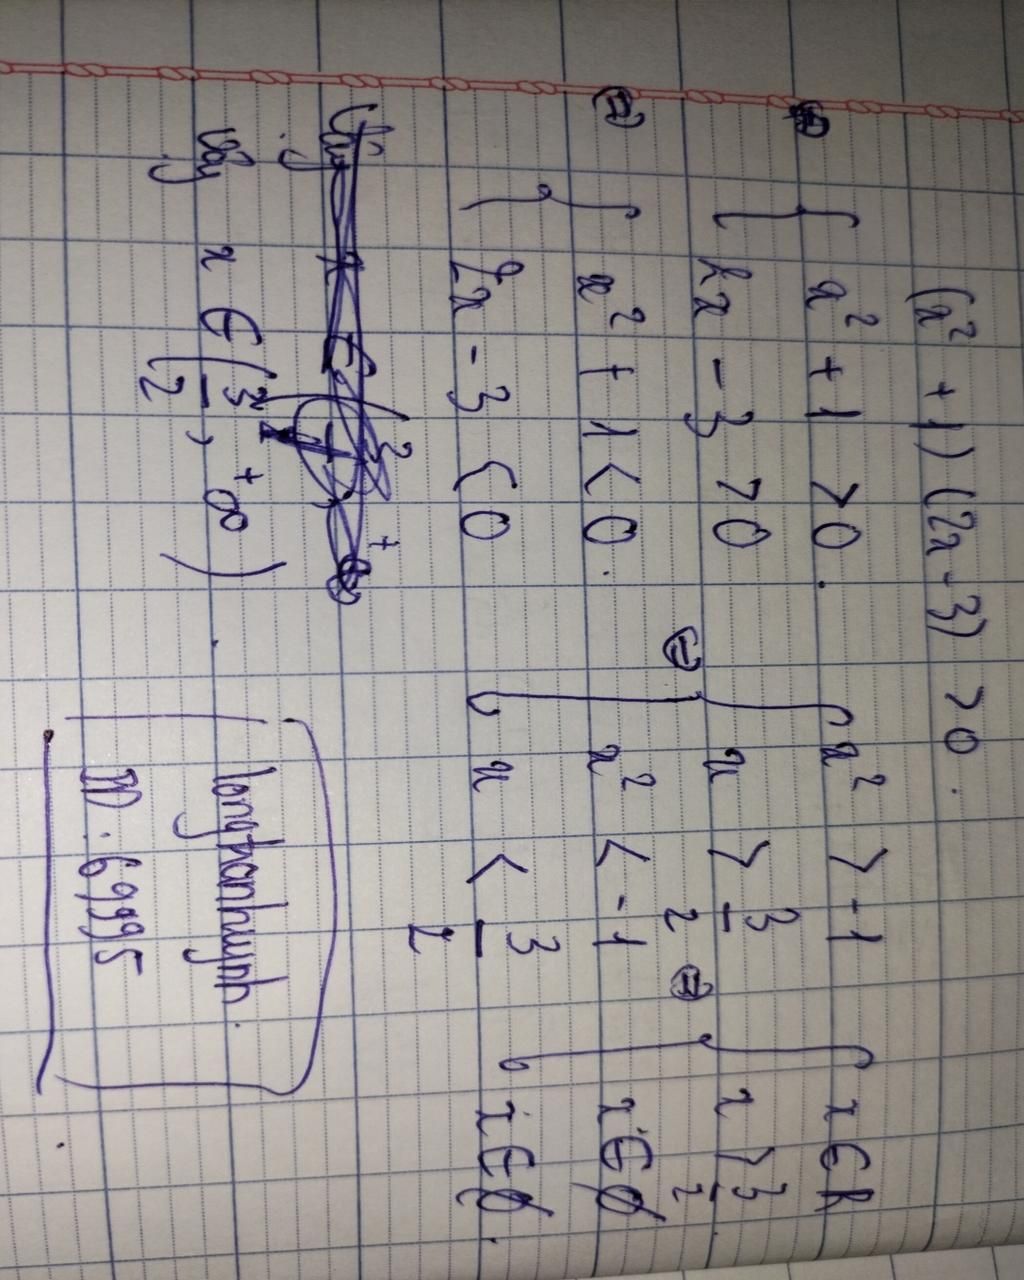 (x² + 1)(2x - 3) > 0.
x² + 1 > 0.
2x - 3 > 0
x² + 1 < 0.
2x - 3 < 0
⇔
x² > -1
x > 3/2
x² < -1
x < 3/2
⇔
x ∈ R
x > 3/2
x ∈ ∅
x ∈ ∅.
Vậy x ∈ (3/2, +∞)
longtranhuynh.
ID: 69995